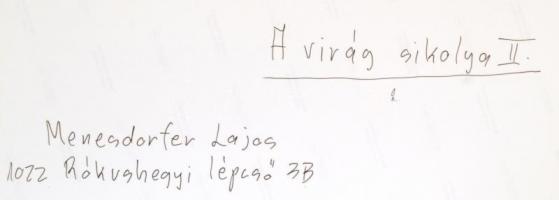 A virág sikolya II.
2
Menesdorfer Lajos
1022 Rókushegyi lépcső 3B